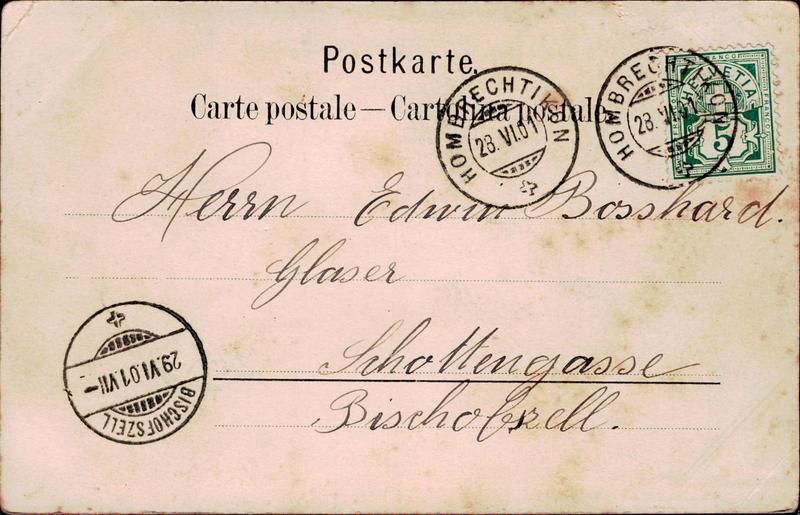 Postkarte.
Carte postale — Cartolina postale
HOMBRECHTIKON
28.VI.01
HOMBRECHTIKON
28.VI.01
FRANCO
HELVETIA
5
Herrn Edwin Bosshard.
Glaser
Schottengasse
Bischofszell.
29.VI.01.VII-
BISCHOFSZELL